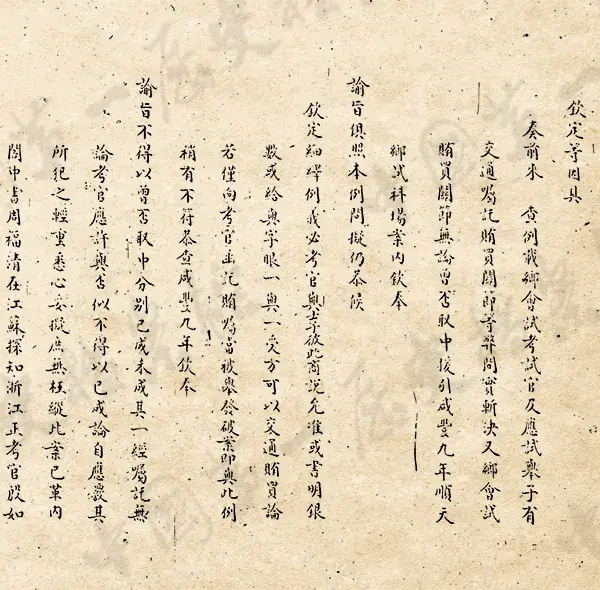 欽定等因具
奏前來 查例載鄉會試考試官及應試舉子有
交通囑託賄買關節等弊問實斬決又鄉會試
賄買關節無論曾否取中援引咸豐九年順天
鄉試科場案內欽奉
諭旨俱照本例問擬仍恭候
欽定細繹例義必考官與士子彼此商說允准或書明銀
數或給與字眼一與一受方可以交通賄買論
若僅向考官函託賄囑當被舉發破案即與此例
稍有不符恭查咸豐九年欽奉
諭旨不得以曾否取中分別已成未成其一經囑託無
論考官應許與否似不得以已成論自應覈其
所犯之輕重悉心妥擬庶無枉縱此案已革內
閣中書周福清在江蘇探知浙江正考官殷如